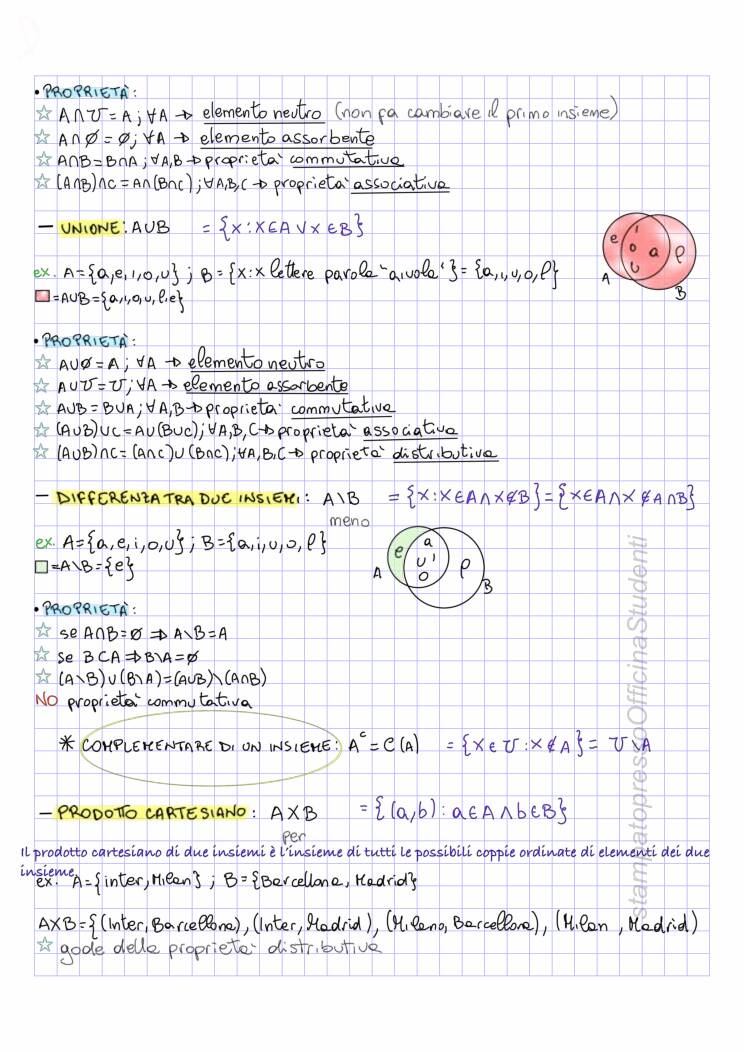 • PROPRIETÀ:
☆ A∩U = A ; ∀A → elemento neutro (non fa cambiare il primo insieme)
☆ A∩∅ = ∅; ∀A → elemento assorbente
☆ A∩B = B∩A ; ∀A,B → proprietà commutativa
☆ (A∩B)∩C = A∩(B∩C) ; ∀A,B,C → proprietà associativa
— UNIONE: A∪B = {x : x∈A ∨ x∈B}
ex. A={a,e,i,o,u} ; B={x:x lettere parola "aiuola"} = {a,i,u,o,l}
=A∪B={a,i,o,u,l,e}
e i o u a l
A B
• PROPRIETÀ:
☆ A∪∅ = A ; ∀A → elemento neutro
☆ A∪U = U ; ∀A → elemento assorbente
☆ A∪B = B∪A ; ∀A,B → proprietà commutativa
☆ (A∪B)∪C = A∪(B∪C) ; ∀A,B,C → proprietà associativa
☆ (A∪B)∩C = (A∩C)∪(B∩C) ; ∀A,B,C → proprietà distributiva
— DIFFERENZA TRA DUE INSIEMI: A\B = {x : x∈A ∧ x∉B} = {x∈A ∧ x∉A∩B}
meno
ex. A={a,e,i,o,u} ; B={a,i,u,o,l}
=A\B={e}
e a u i o l
A B
• PROPRIETÀ:
☆ se A∩B=∅ ⇒ A\B=A
☆ se B⊂A ⇒ B\A=∅
☆ (A\B)∪(B\A)=(A∪B)\(A∩B)
NO proprietà commutativa
* COMPLEMENTARE DI UN INSIEME: Aᶜ = C(A) = {x∈U : x∉A} = U\A
— PRODOTTO CARTESIANO: A×B = {(a,b) : a∈A ∧ b∈B}
per
Il prodotto cartesiano di due insiemi è l'insieme di tutti le possibili coppie ordinate di elementi dei due
insieme.
ex. A={inter, Milan} ; B={Barcellona, Madrid}
A×B={(Inter, Barcellona), (Inter, Madrid), (Milano, Barcellona), (Milan, Madrid)
☆ gode della proprietà distributiva
stampatopressoOfficinaStudenti